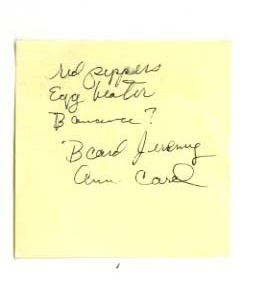 red peppers
Egg beater
Banana?
Bcard Jeremy
Ann. Carol